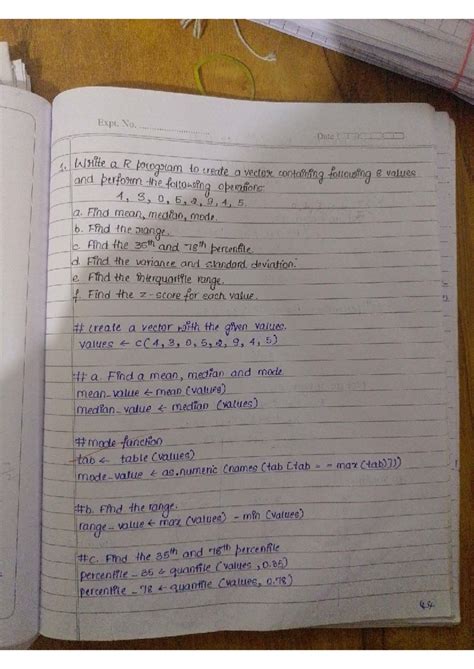 Expt. No.
Date
1. Write a R program to create a vector containing following 8 values
and perform the following operations
4, 3, 0, 5, 2, 9, 4, 5.
a. Find mean, median, mode.
b. Find the range.
c Find the 35th and 78th percentile.
d Find the variance and standard deviation.
e Find the interquartile range.
f. Find the z-score for each value.
# create a vector with the given values.
values ← c(4, 3, 0, 5, 2, 9, 4, 5)
# a. Find a mean, median and mode
mean_value ← mean (values)
median_value ← median (values)
# mode function
tab ← table (values)
mode_value ← as.numeric (names (tab [tab = = max (tab)]))
#b. Find the range.
range_value ← max (values) - min (values)
#c. Find the 35th and 78th percentile
percentile_35 ← quantile (values, 0.35)
percentile_78 ← quantile (values, 0.78)